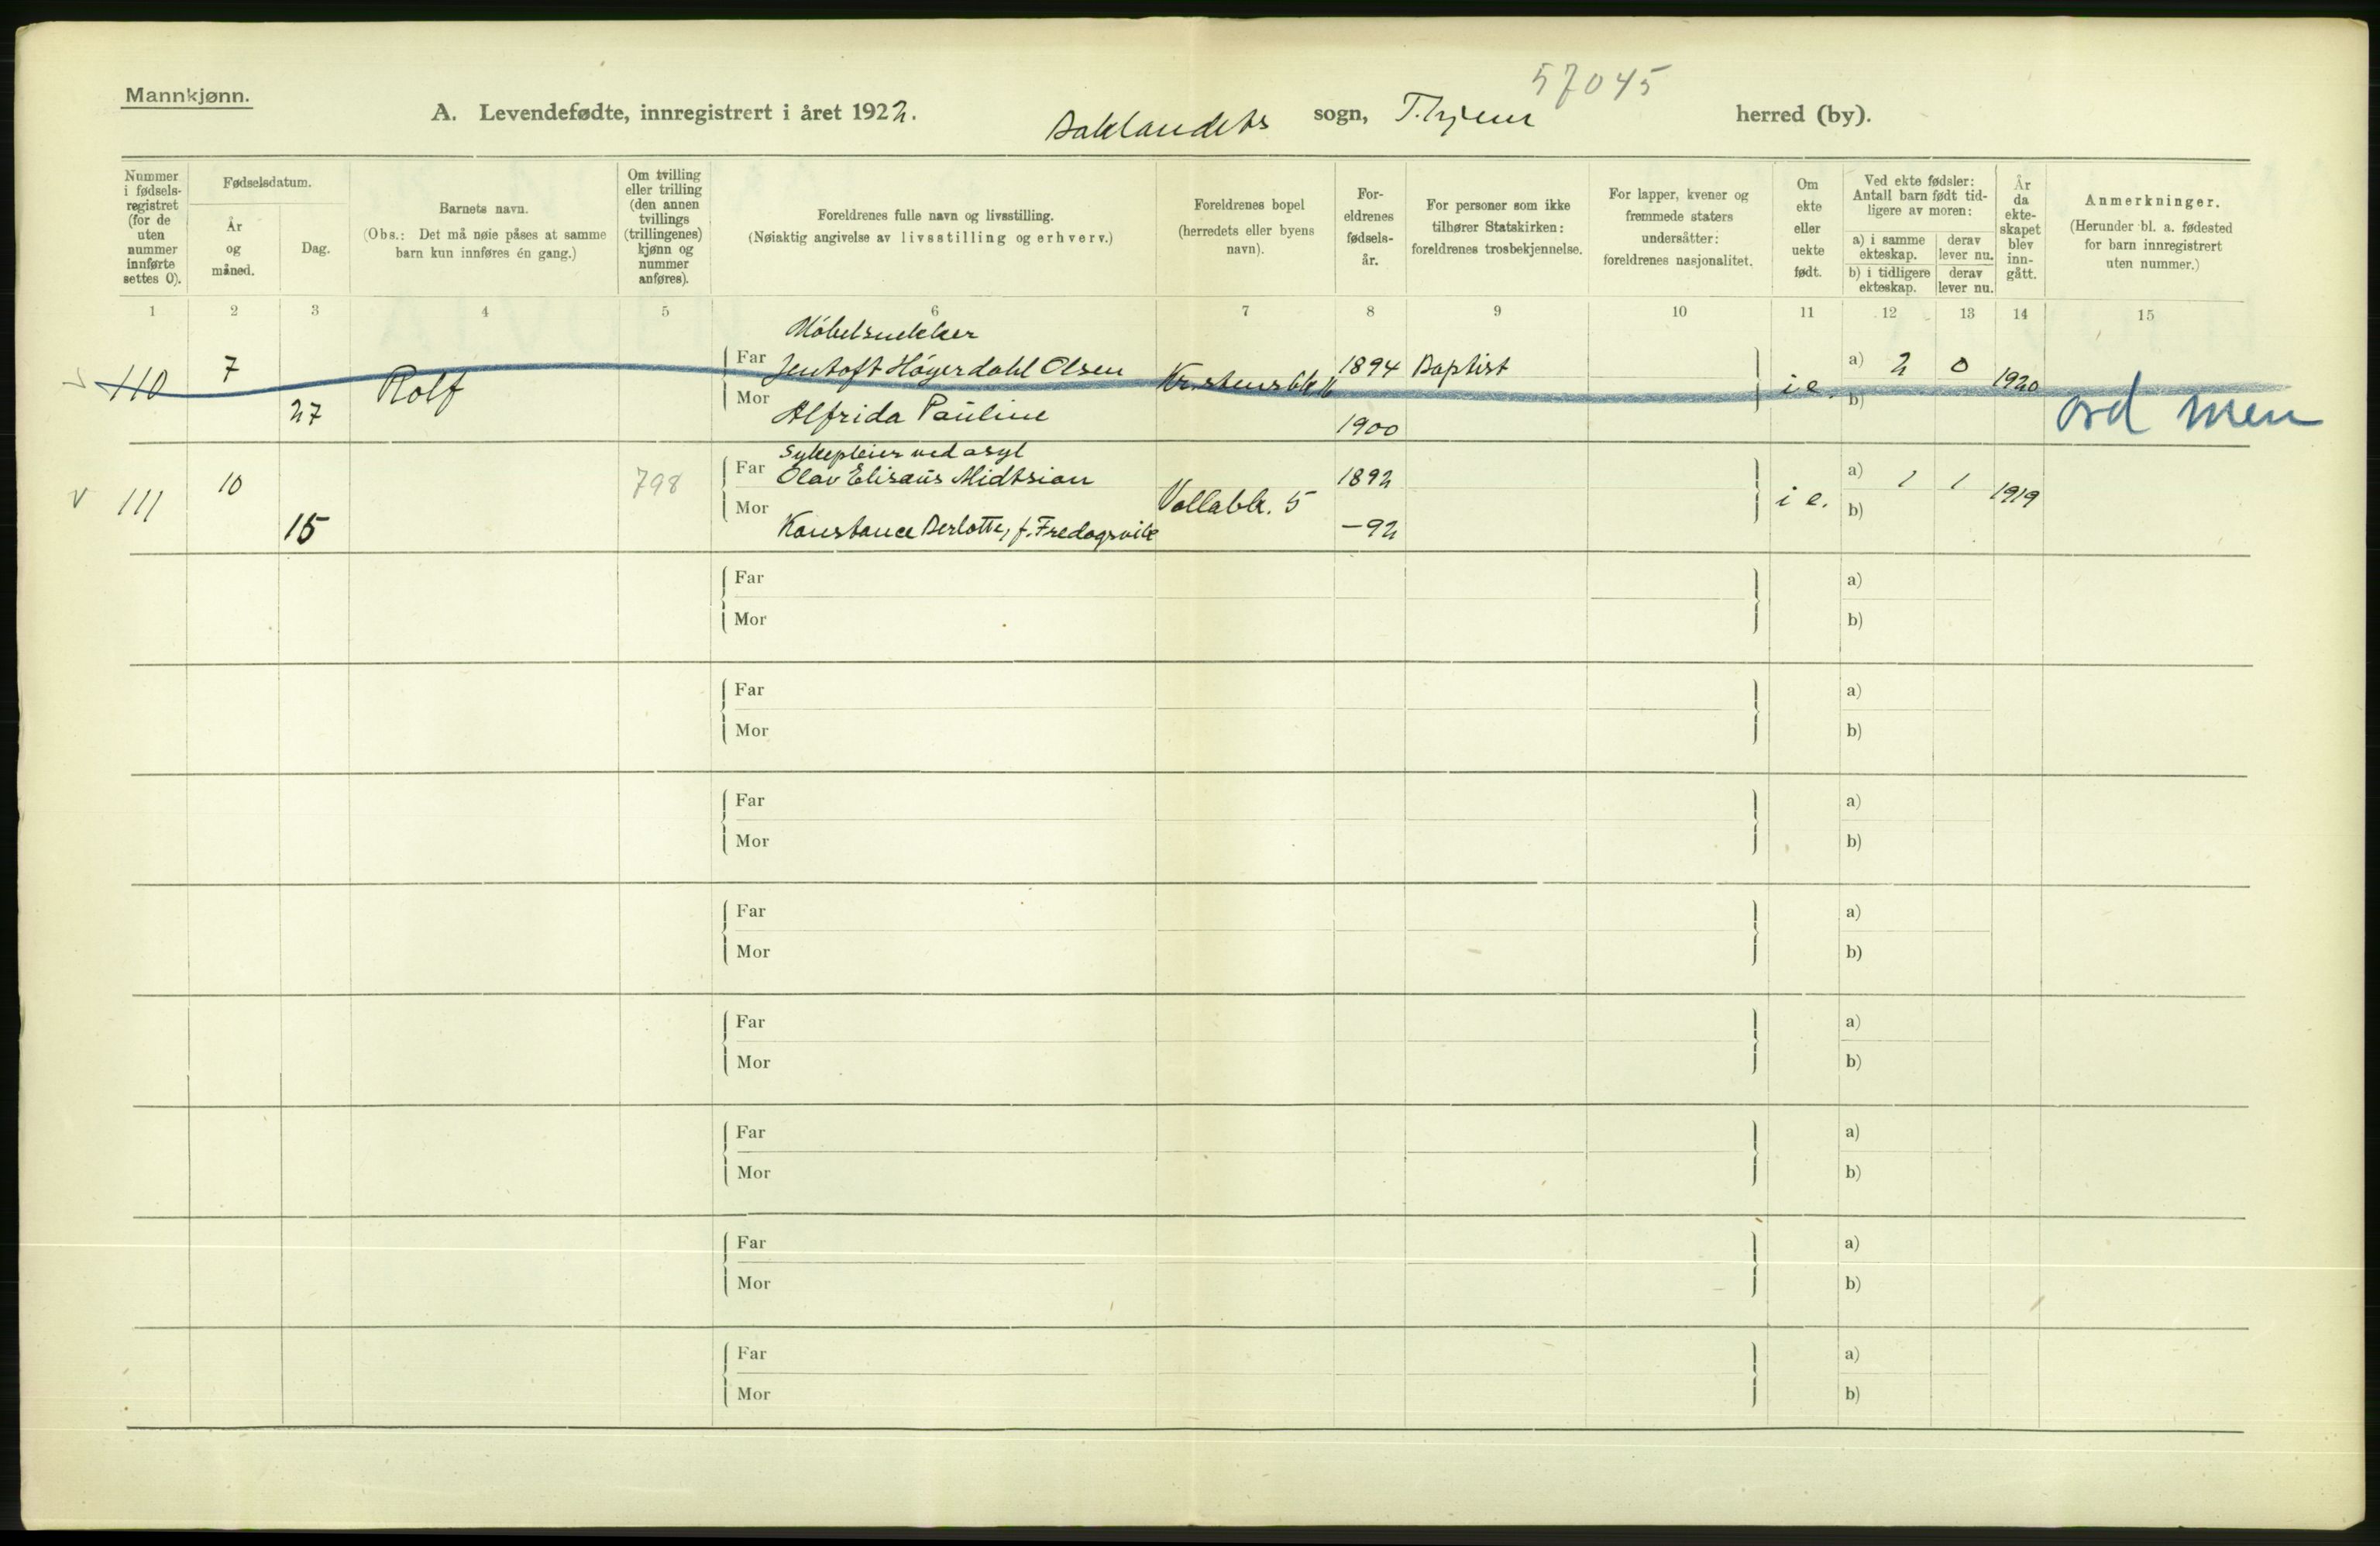 57045
Mannkjønn.
A. Levendefødte, innregistrert i året 1922. Baklandets sogn, T.hjem herred (by).
Nummer i fødsels- registret (for de uten nummer innførte settes 0).
Fødselsdatum.
År og måned.
Dag.
Barnets navn.
(Obs.: Det må nøie påses at samme barn kun innføres én gang.)
Om tvilling eller trilling (den annen tvillings (trillingenes) kjønn og nummer anføres).
Foreldrenes fulle navn og livsstilling.
(Nøiaktig angivelse av livsstilling og erhverv.)
Foreldrenes bopel
(herredets eller byens navn).
For- eldrenes fødsels- år.
For personer som ikke tilhører Statskirken: foreldrenes trosbekjennelse.
For lapper, kvener og fremmede staters undersåtter: foreldrenes nasjonalitet.
Om ekte eller uekte født.
Ved ekte fødsler: Antall barn født tid- ligere av moren:
a) i samme ekteskap.
derav lever nu.
b) i tidligere ekteskap.
derav lever nu.
År da ekte- skapet blev inn- gått.
Anmerkninger.
(Herunder bl. a. fødested for barn innregistrert uten nummer.)
1 2 3 4 5 6 7 8 9 10 11 12 13 14 15
Møbelsnekker
110 7 Far Jentoft Høyerdahl Olsen 1894 Baptist a) 2 0 1920
27 Rolf Mor Alfrida Pauline 1900 i e. b) ord men
Sykepleier ved asyl
v 111 10 798 Far Olav Elisæus Midtsian 1892 a) 1 1 1919
15 Mor Konstance Berlotte, f. Fredagsvik Vollabk. 5 -92 i e. b)
Far a)
Mor b)
Far a)
Mor b)
Far a)
Mor b)
Far a)
Mor b)
Far a)
Mor b)
Far a)
Mor b)
Far a)
Mor b)
Far a)
Mor b)